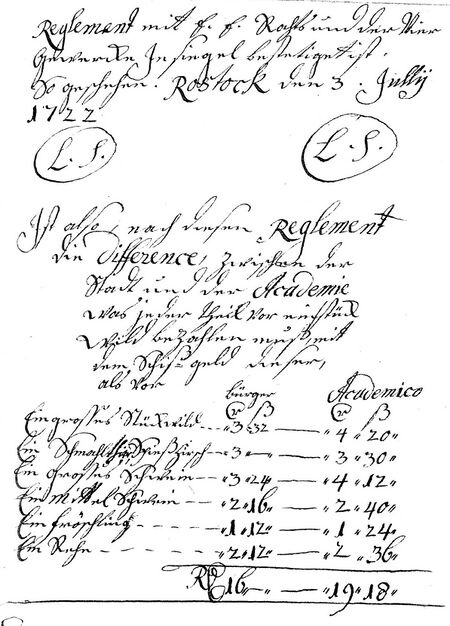 Reglement mit E. E. Rahts und der Vier
Gewercke Insiegel bestetiget ist.
So geschehen. Rostock den 3. Jullÿ
1722
L. S. L. S.
Ist also, nach diesen Reglement
die Difference, zwischen der
Stadt und der Academie
was jeder theil vor ein stück
Wild bezahlen muß, mit
dem Schiß-geld dieser,
als vor
bürger Academico
Ein grosses Stückwild -- 3 „ 32 — „ 4 „ 20 „
Ein Schmahlthier -- „ 3 „ — „ 3 „ 30 „
Ein grosses Schwein -- „ 3 „ 24 „ — „ 4 „ 12 „
Ein mittel Schwein -- „ 2 „ 16 „ — „ 2 „ 40 „
Ein fröschling - - - - „ 1 „ 12 „ — „ 1 „ 24 „
Ein Rehe - - - - - „ 2 „ 12 „ — „ 2 „ 36 „
16 „ — „ 19 „ 18 „